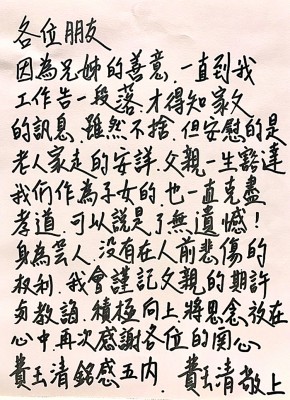 各位朋友
因為兄姊的善意,一直到我
工作告一段落,才得知家父
的訊息,雖然不捨,但安慰的是
老人家走的安詳,父親一生豁達
我們作為子女的,也一直克盡
孝道,可以說是了無遺憾!
身為藝人,沒有在人前悲傷的
权利,我會謹記父親的期許
与教誨,積極向上,將思念放在
心中,再次感謝各位的関心
費玉清銘感五內, 費玉清敬上